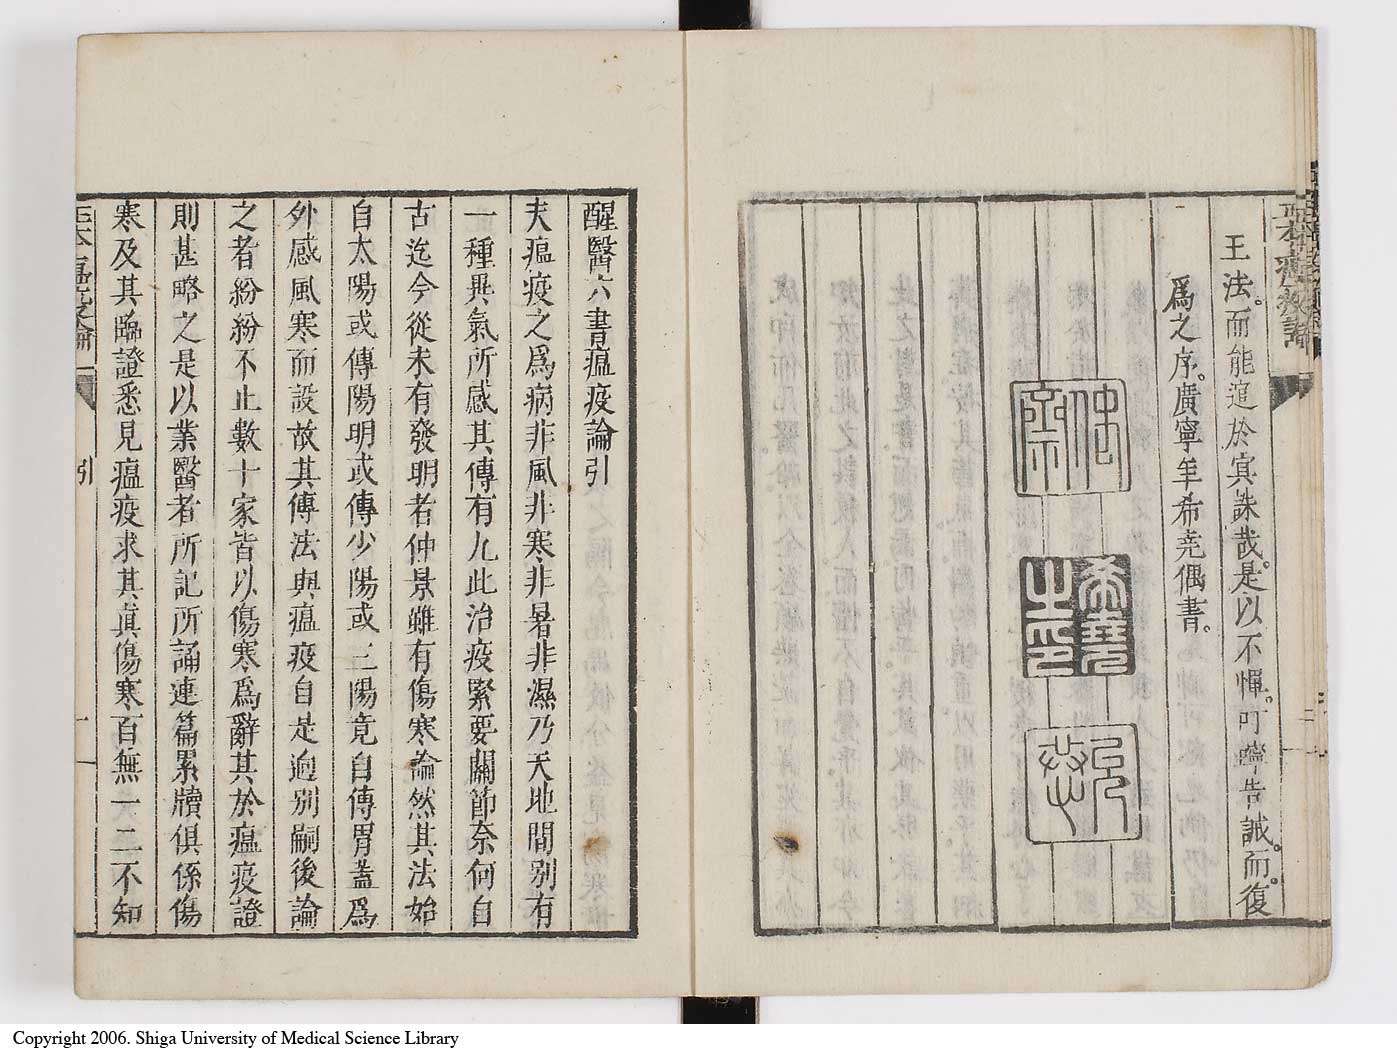 王法。而能逭於冥誅哉。是以不憚。叮嚀告誡。而復
爲之序。廣寧年希堯偶書。
希堯之印
醒醫六書瘟疫論引
夫瘟疫之爲病非風非寒非暑非濕乃天地間別有
一種異氣所感其傳有九此治疫緊要關節奈何自
古迄今從未有發明者仲景雖有傷寒論然其法始
自太陽或傳陽明或傳少陽或三陽竟自傳胃蓋爲
外感風寒而設故其傳法與瘟疫自是逈別嗣後論
之者紛紛不止數十家皆以傷寒爲辭其於瘟疫證
則甚略之是以業醫者所記所誦連篇累牘俱係傷
寒及其臨證悉見瘟疫求其眞傷寒百無一二不知
引
一
Copyright 2006. Shiga University of Medical Science Library